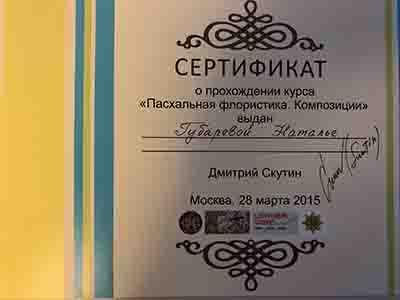 СЕРТИФИКАТ
о прохождении курса
«Пасхальная флористика. Композиции»
выдан
Губаревой Наталье
Дмитрий Скутин
Москва. 28 марта 2015